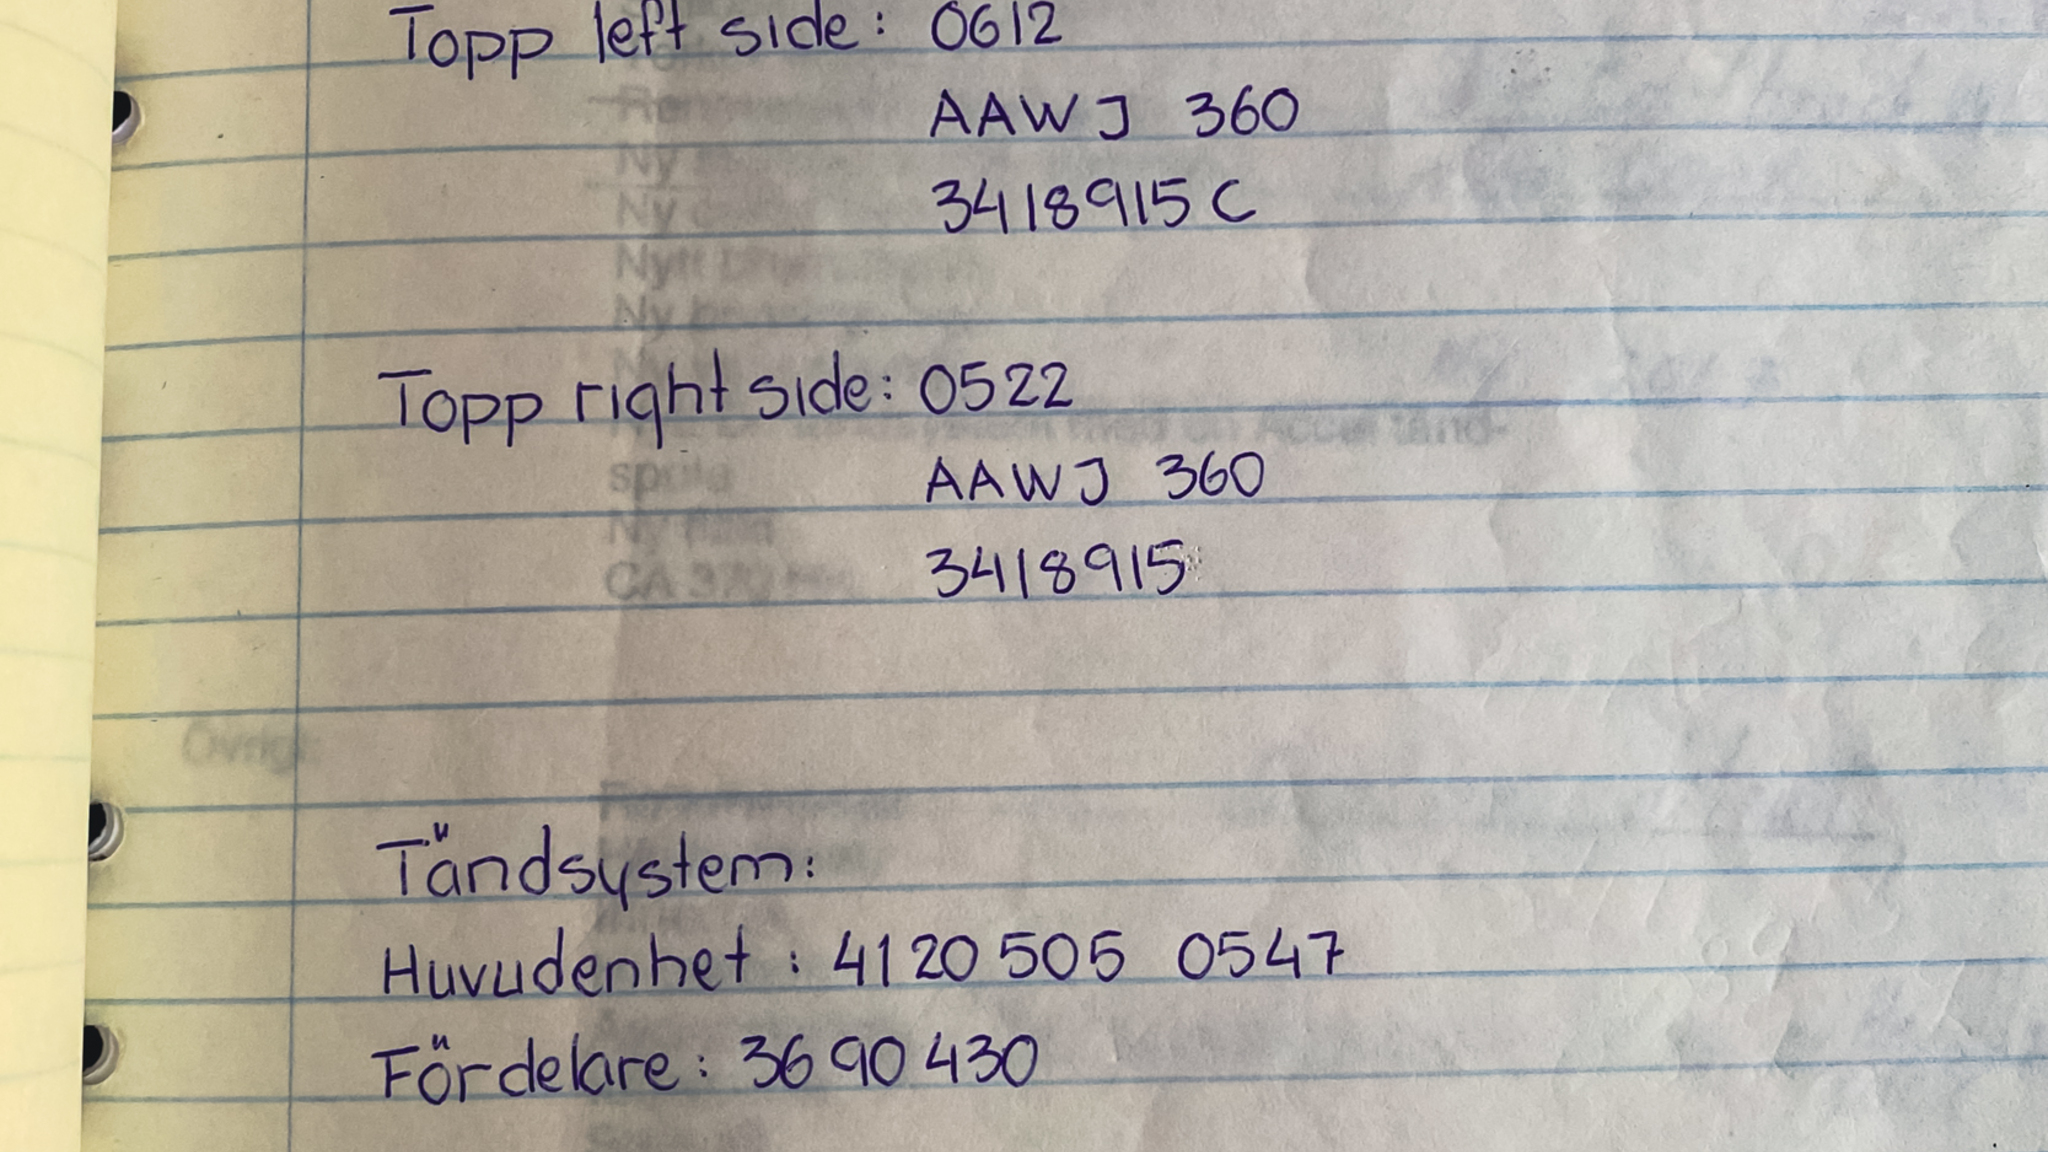 Topp left side: 0612
AAWJ 360
3418915 C
Topp right side: 0522
AAWJ 360
3418915
Tändsystem:
Huvudenhet: 4120 505 0547
Fördelare: 3690 430